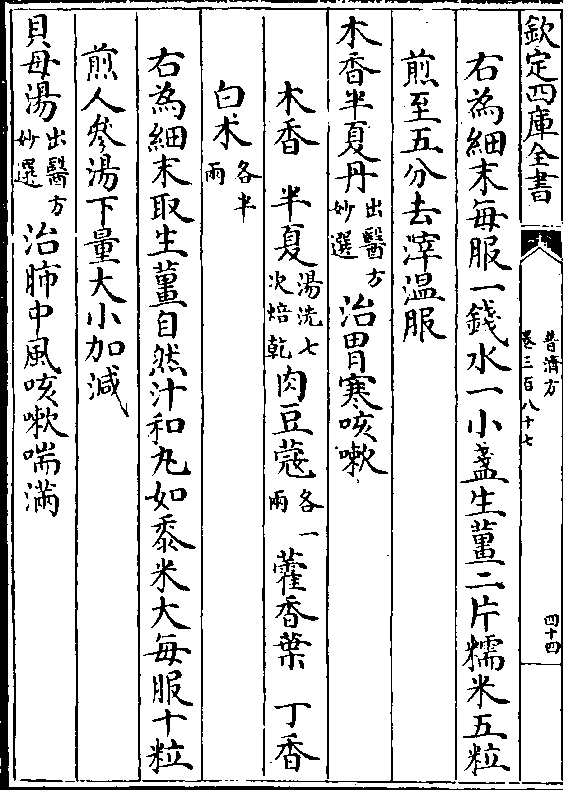 欽定四庫全書
普濟方
卷三百八十七
四十四
右為細末每服一錢水一小盞生薑二片糯米五粒
煎至五分去滓温服
木香半夏丹出醫方妙選治胃寒咳嗽
木香 半夏湯洗七次焙乾肉豆蔻各一兩 藿香葉 丁香
白朮各半兩
右為細末取生薑自然汁和丸如黍米大每服十粒
煎人參湯下量大小加減
貝母湯出醫方妙選治肺中風咳嗽喘滿